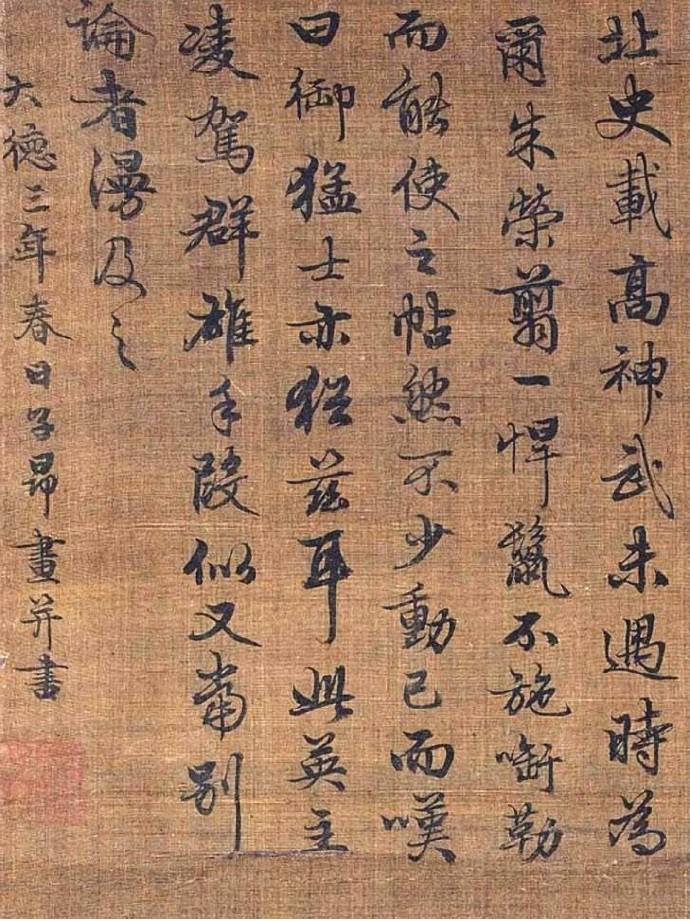 北史載高神武未遇時為
爾朱榮翦一悍鬣不施啣勒
而能使之帖然不少動已而嘆
曰御猛士亦猶茲耳此英主
凌駕群雄手段似又當別
論者漫及之
大德三年春日子昂畫并書